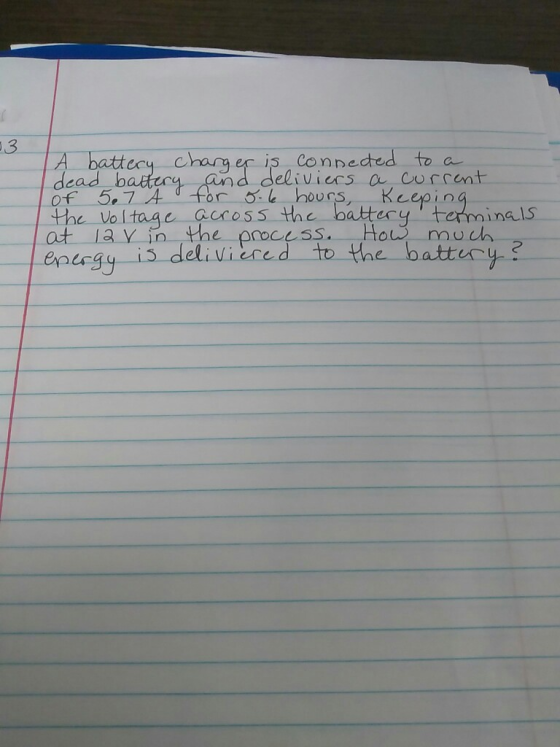 03
A battery charger is connected to a
dead battery and deliviers a current
of 5.7 A for 5.6 hours, Keeping
the voltage across the battery terminals
at 12 V in the process. How much
energy is deliviered to the battery?